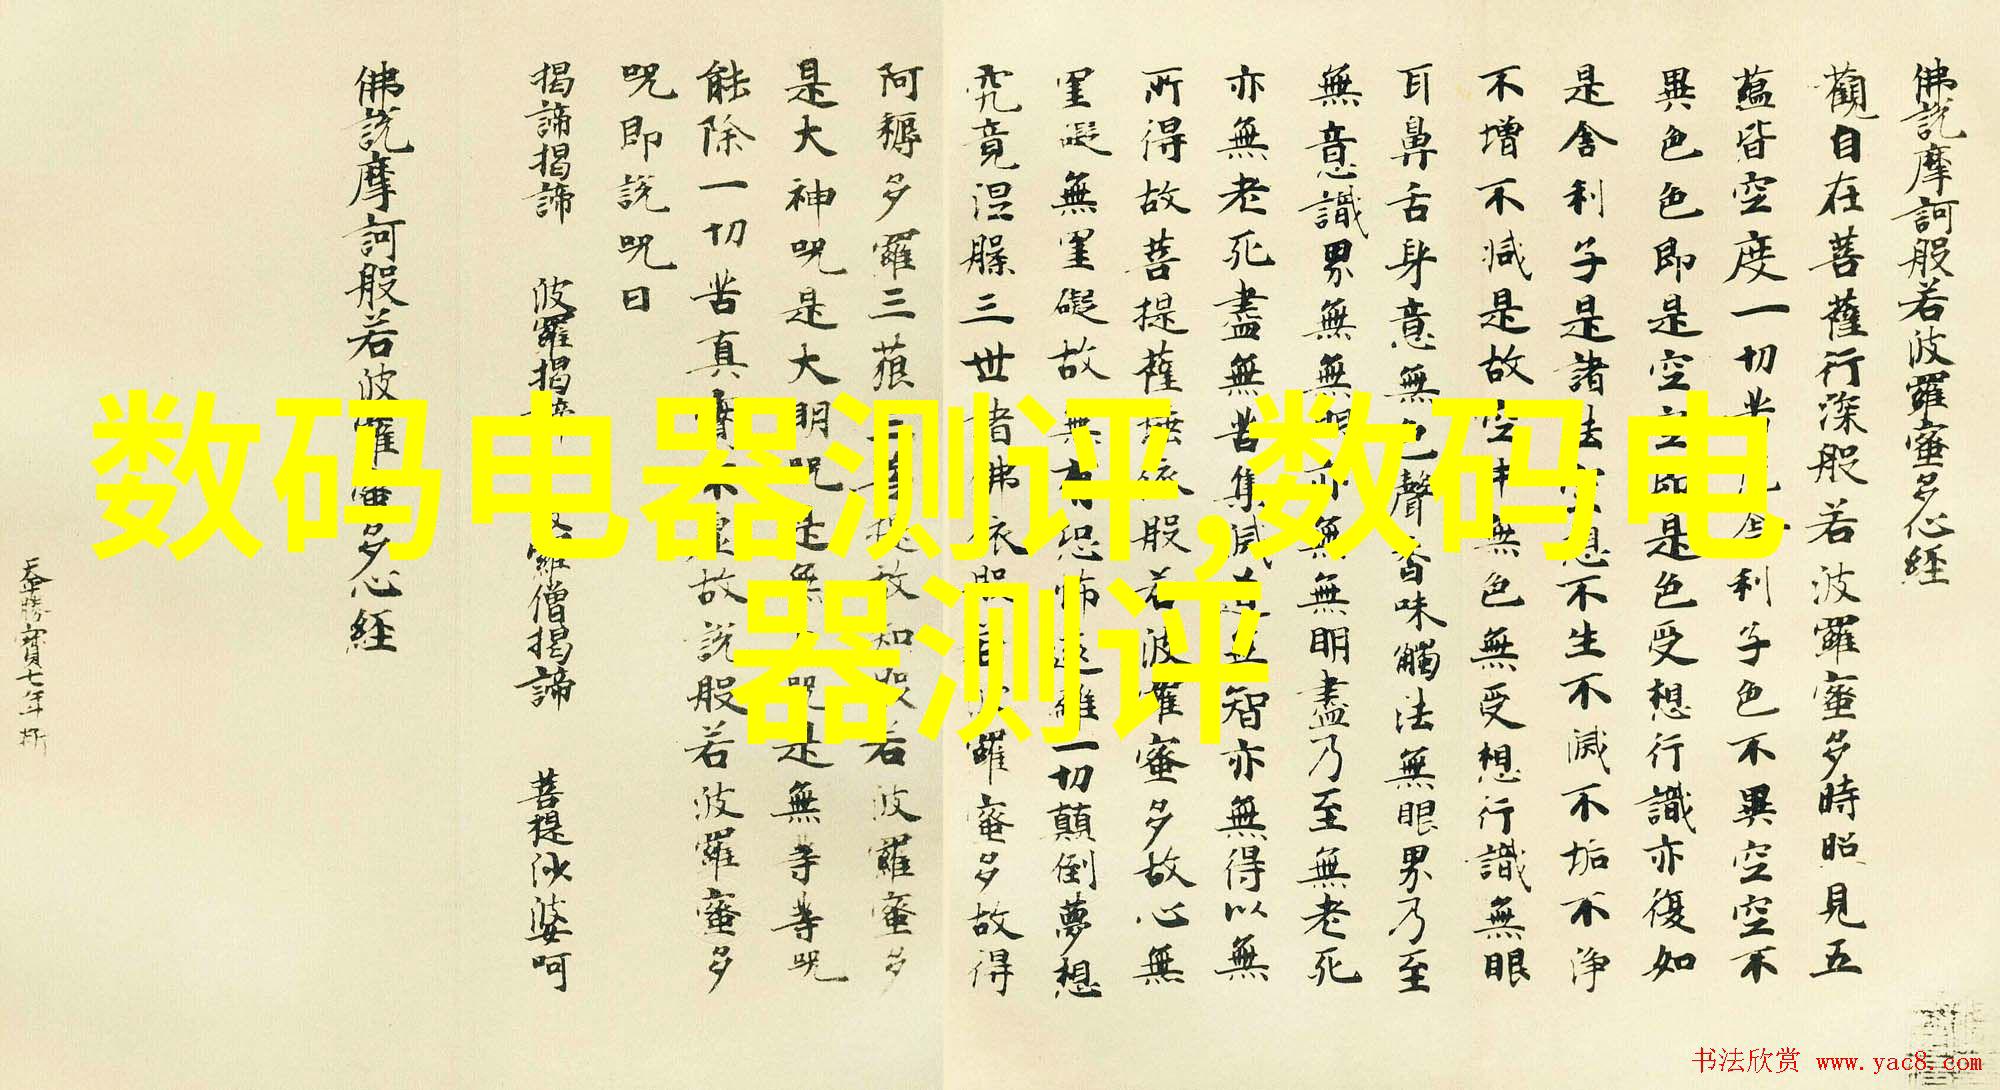 佛說摩訶般若波羅蜜多心經
觀自在菩薩行深般若波羅蜜多時照見五
蘊皆空度一切苦厄舍利子色不異空空不
異色色即是空空即是色受想行識亦復如
是舍利子是諸法空想不生不滅不垢不淨
不增不減是故空中無色無受想行識無眼
耳鼻舌身意無色聲香味觸法無眼界乃至
無意識界無無明亦無無明盡乃至無老死
亦無老死盡無苦集滅道無智亦無得以無
所得故菩提薩埵依般若波羅蜜多故心無
罣礙無罣礙故無有恐怖遠離一切顛倒夢想
究竟涅槃三世諸佛依般若波羅蜜多故得
阿耨多羅三藐三菩提故知般若波羅蜜多
是大神咒是大明咒是無上咒是無等等咒
能除一切苦真實不虛故說般若波羅蜜多
咒即說咒曰
揭諦揭諦 波羅揭諦 波羅僧揭諦 菩提沙婆呵
佛說摩訶般若波羅蜜多心經
天寶七年
数码电器测评,数码电
器测评
书法欣赏 www.yac8.com